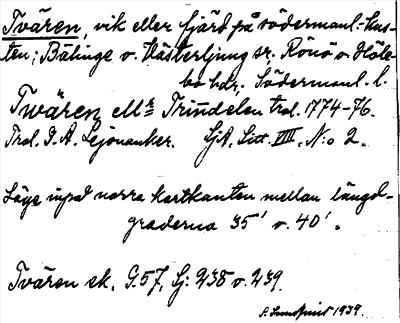 Tvären, vik eller fjärd på södermanl. kus-
ten; Bälinge o. Västerljung sr, Rönö o. Höle-
bo hdr, Södermanl. l.
Twären, Mr Trindelen trol. 1774-76.
Trol. P. A. Lejonanker. SjA, Litt. VIII, N:o 2.
Läge inpå norra kartkanten mellan längd-
graderna 35' o. 40'.
Tvären ek. G.57, Sj: 238 o. 239.
S. Lundqvist 1939.